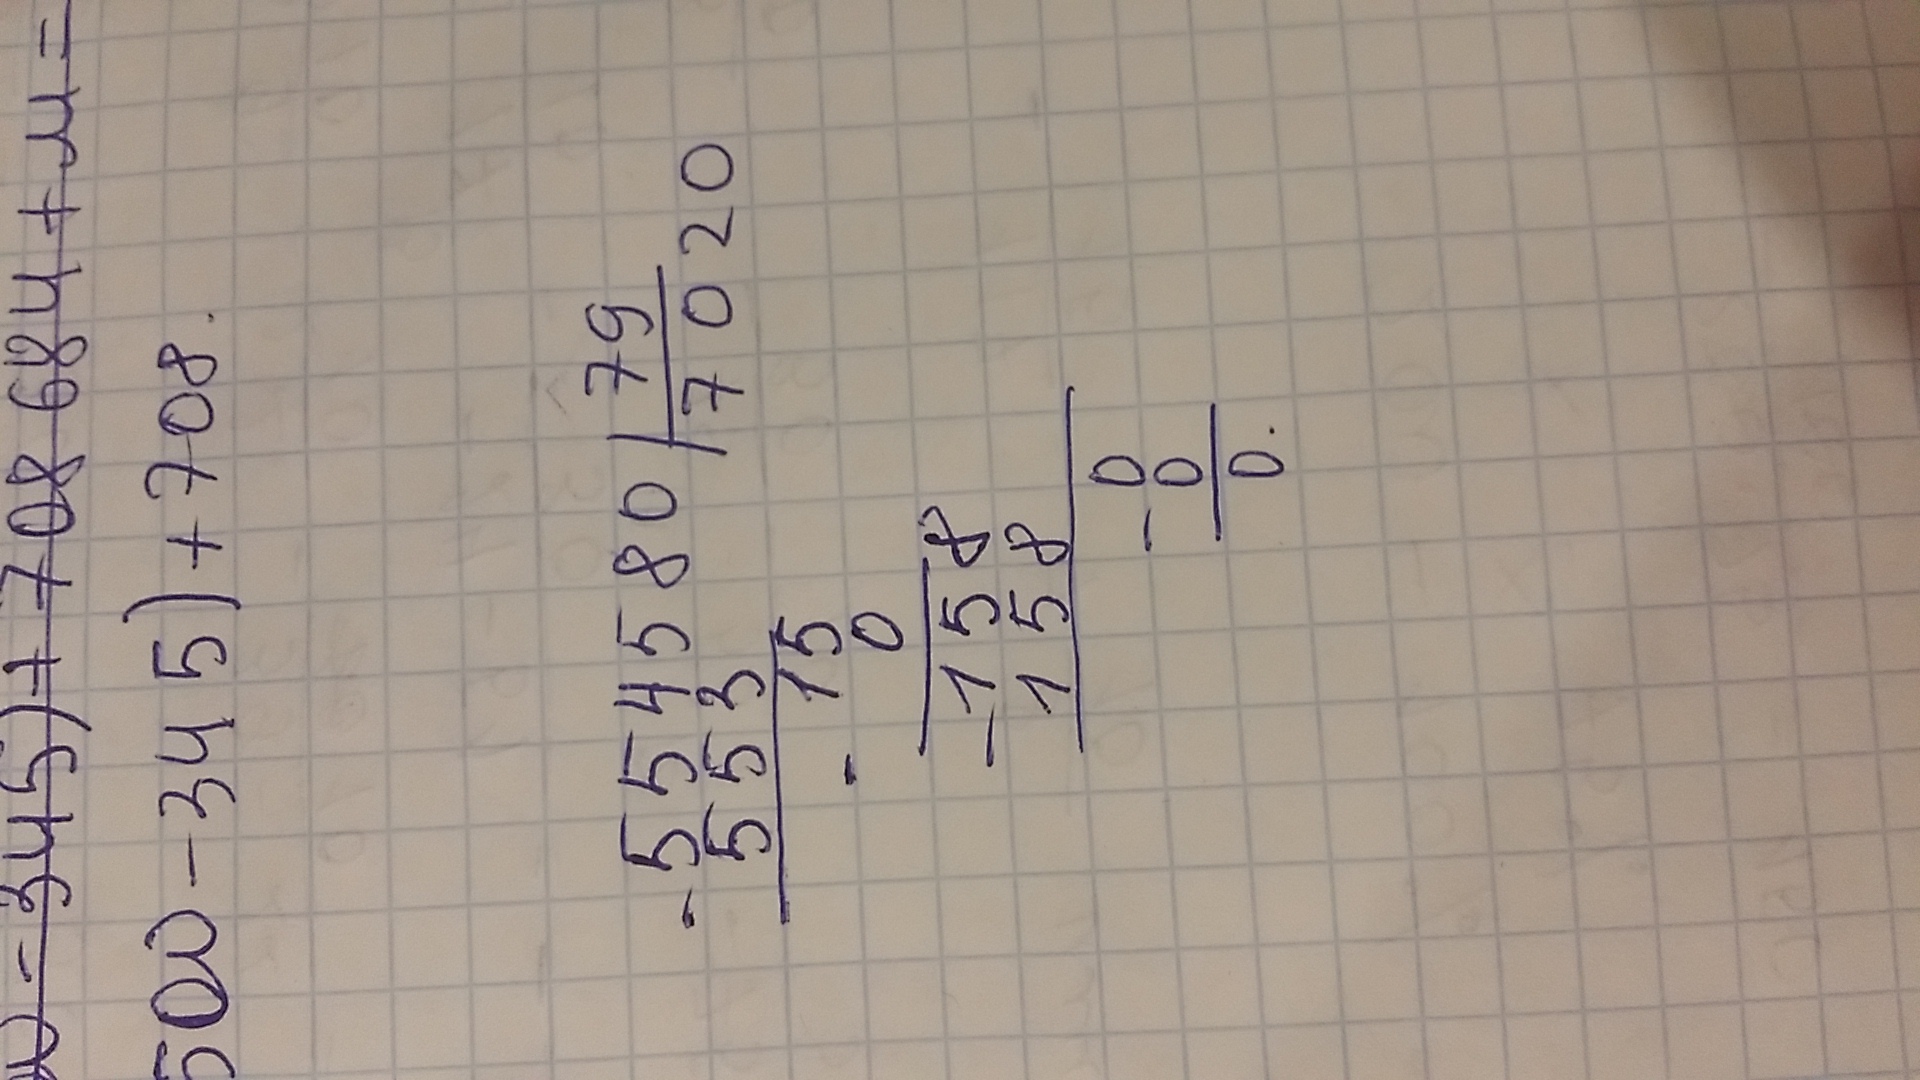 - 345) + 708 684 + м =
500 - 345) + 708.
- 554580 | 79
553 | 7020
15
- 0
- 158
158
0
- 0
0.